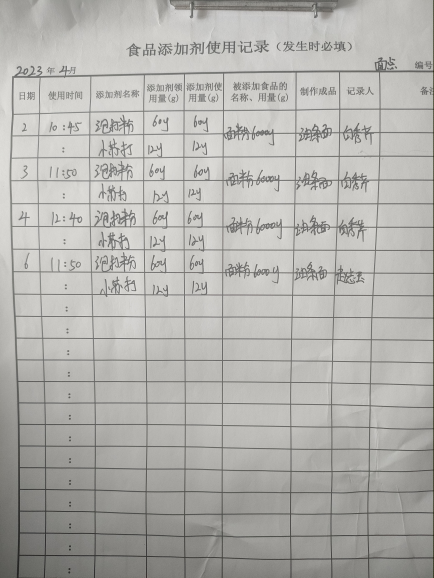 食品添加剂使用记录（发生时必填）
2023 年 4月 面点 编号
日期 使用时间 添加剂名称 添加剂领用量(g) 添加剂使用量(g) 被添加食品的名称、用量(g) 制作成品 记录人 备注
2 10:45 泡打粉 60g 60g 面粉6000g 面
: 小苏打 12g 12g
3 11:50 泡打粉 60g 60g 面粉6000g 面
: 小苏打 12g 12g
4 12:40 泡打粉 60g 60g 面粉6000g 面
: 小苏打 12g 12g
6 11:50 泡打粉 60g 60g 面粉6000g 面
: 小苏打 12g 12g
:
:
:
:
:
:
:
:
:
:
:
:
: